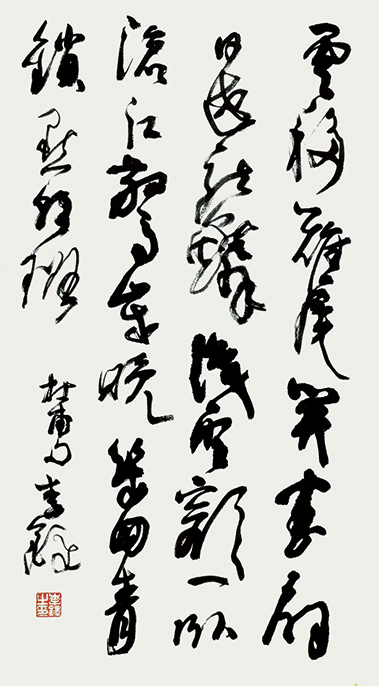 雲移雉尾開宮扇
日繞龍鱗識聖顏一臥
滄江驚歲晚幾回青
鎖點朝班
杜甫句 李鐸